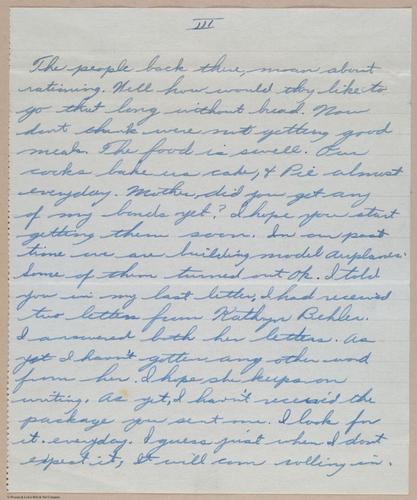 III
The people back there, moan about
rationing. Well how would they like to
go that long without bread. Now
don't think were not getting good
meals. The food is swell. Our
cooks bake us cake, & Pie almost
everyday. Mother, did you get any
of my bonds yet? I hope you start
getting them soon. In our past
time we are building model airplanes.
Some of them turned out Ok. I told
you in my last letter, I had received
two letters from Kathryn Bichler.
I answered both her letters. As
yet I havn't gotten any other word
from her. I hope she keeps on
writing. As yet, I havn't received the
package you sent me. I look for
it everyday. I guess just when I dont
expect it, It will com rolling in.